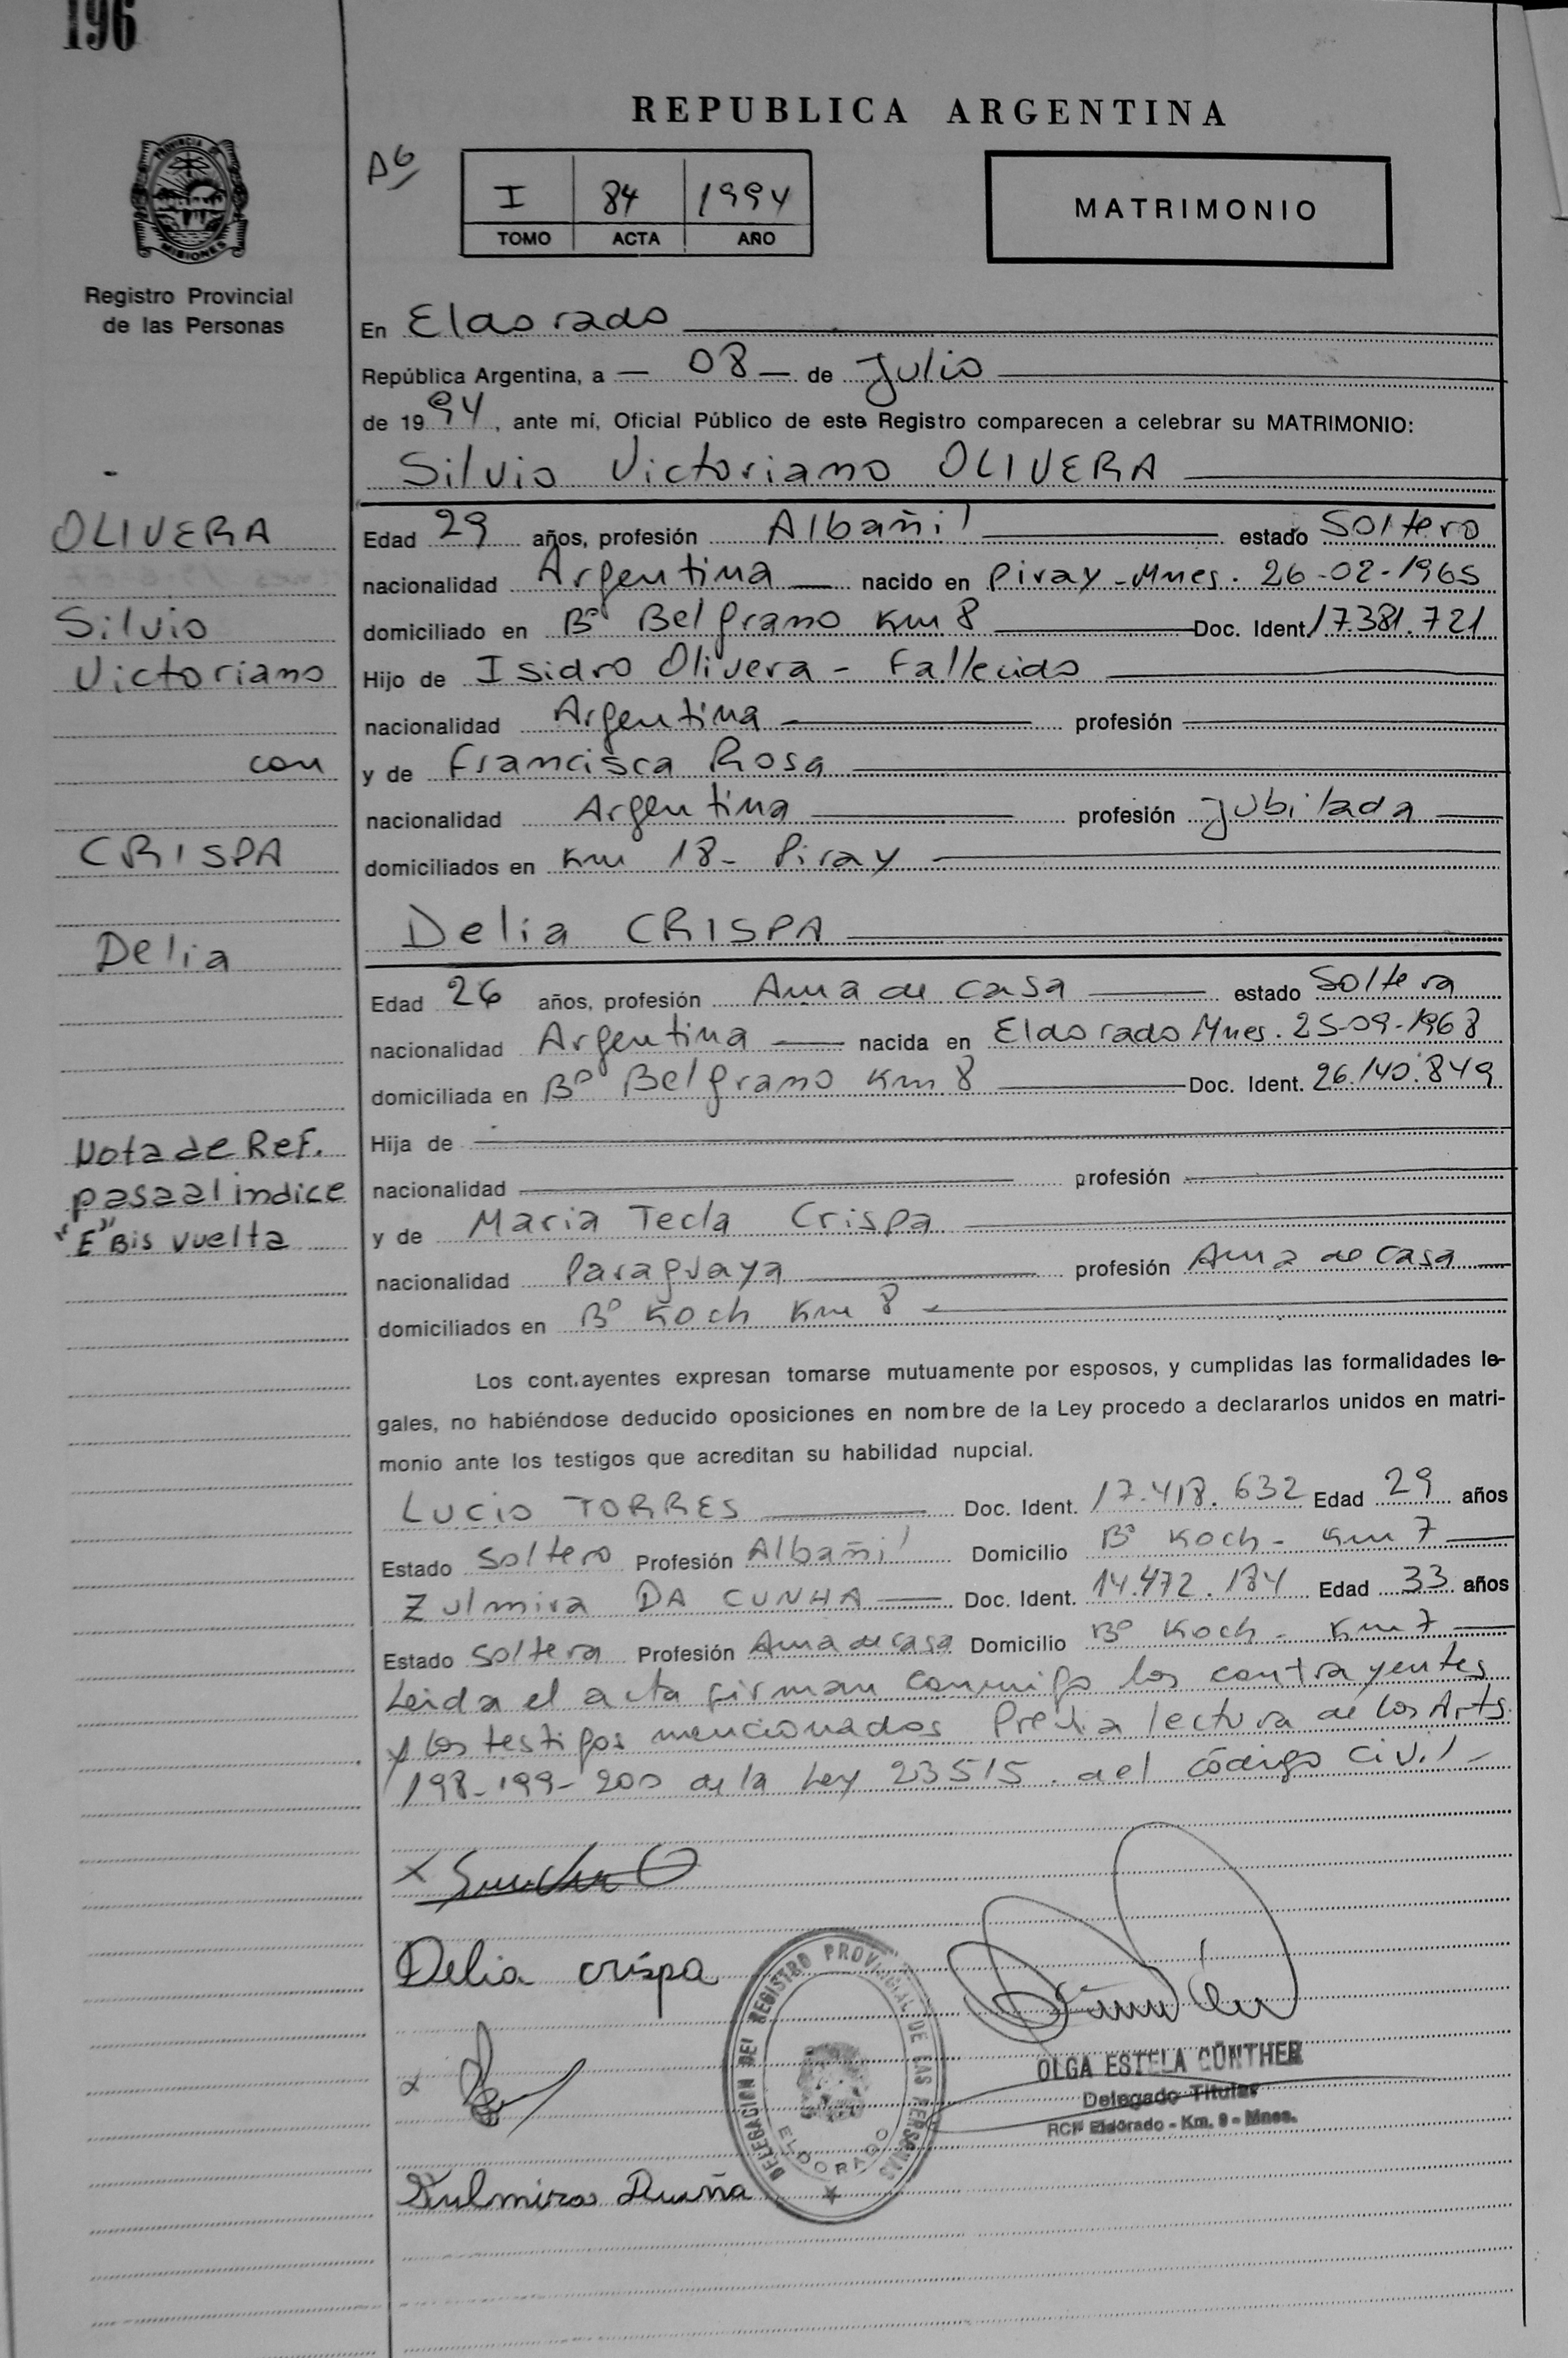 196
REPUBLICA ARGENTINA
PROVINCIA DE MISIONES
I 84 1994
TOMO ACTA AÑO
MATRIMONIO
Registro Provincial
de las Personas
En Eldorado
República Argentina, a — 08 — de Julio
de 1994, ante mí, Oficial Público de este Registro comparecen a celebrar su MATRIMONIO:
Silvio Victoriano OLIVERA
OLIVERA
Silvio
Victoriano
con
CRISPA
Delia
Edad 29 años, profesión Albañil estado Soltero
nacionalidad Argentina nacido en Piray - Mnes. 26-02-1965
domiciliado en Bº Belgrano Km 8 Doc. Ident. 17.381.721
Hijo de Isidro Olivera - Fallecido
nacionalidad Argentina profesión
y de Francisca Rosa
nacionalidad Argentina profesión Jubilada
domiciliados en Km 18 - Piray
Delia CRISPA
Edad 26 años, profesión Ama de casa estado Soltera
nacionalidad Argentina nacida en Eldorado Mnes. 25-09-1968
domiciliada en Bº Belgrano Km 8 Doc. Ident. 26.140.849
Nota de Ref.
pasa al indice
"E" Bis vuelta
Hija de
nacionalidad profesión
y de Maria Tecla Crispa
nacionalidad Paraguaya profesión Ama de casa
domiciliados en Bº Koch Km 8 -
Los cont.ayentes expresan tomarse mutuamente por esposos, y cumplidas las formalidades le-
gales, no habiéndose deducido oposiciones en nombre de la Ley procedo a declararlos unidos en matri-
monio ante los testigos que acreditan su habilidad nupcial.
LUCIO TORRES Doc. Ident. 17.418.632 Edad 29 años
Estado Soltero Profesión Albañil Domicilio Bº Koch - Km 7
Zulmira DA CUNHA Doc. Ident. 14.472.184 Edad 33 años
Estado Soltera Profesión Ama de casa Domicilio Bº Koch - Km 7
Leida el acta firman conmigo los contrayentes
y los testigos mencionados Previa lectura de los Arts.
198-199-200 de la Ley 23515. del código civil -
x
Delia crispa
DELEGACION DEL REGISTRO PROVINCIAL DE LAS PERSONAS
ELDORADO
OLGA ESTELA GÜNTHER
Delegado Titular
RCP Eldorado - Km. 9 - Mnes.
x
Zulmira